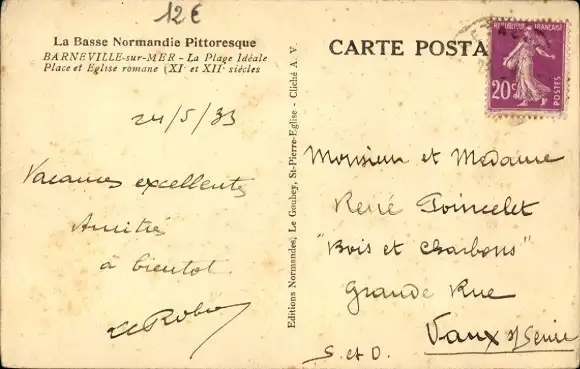 12€
La Basse Normandie Pittoresque
BARNEVILLE-sur-MER - La Plage Idéale
Place et Eglise romane (XIᵉ et XIIᵉ siècles
24/5/33
Vacances excellentes
Amitiés
à bientot
Editions Normandes, Le Goubey, St-Pierre-Eglise - Cliché A. V.
CARTE POSTA
REPUBLIQUE FRANÇAISE
20c
POSTES
Monsieur et Madame
René Poincelet
"Bois et Charbons"
Grande Rue
Vaux s/Seine
S. et O.